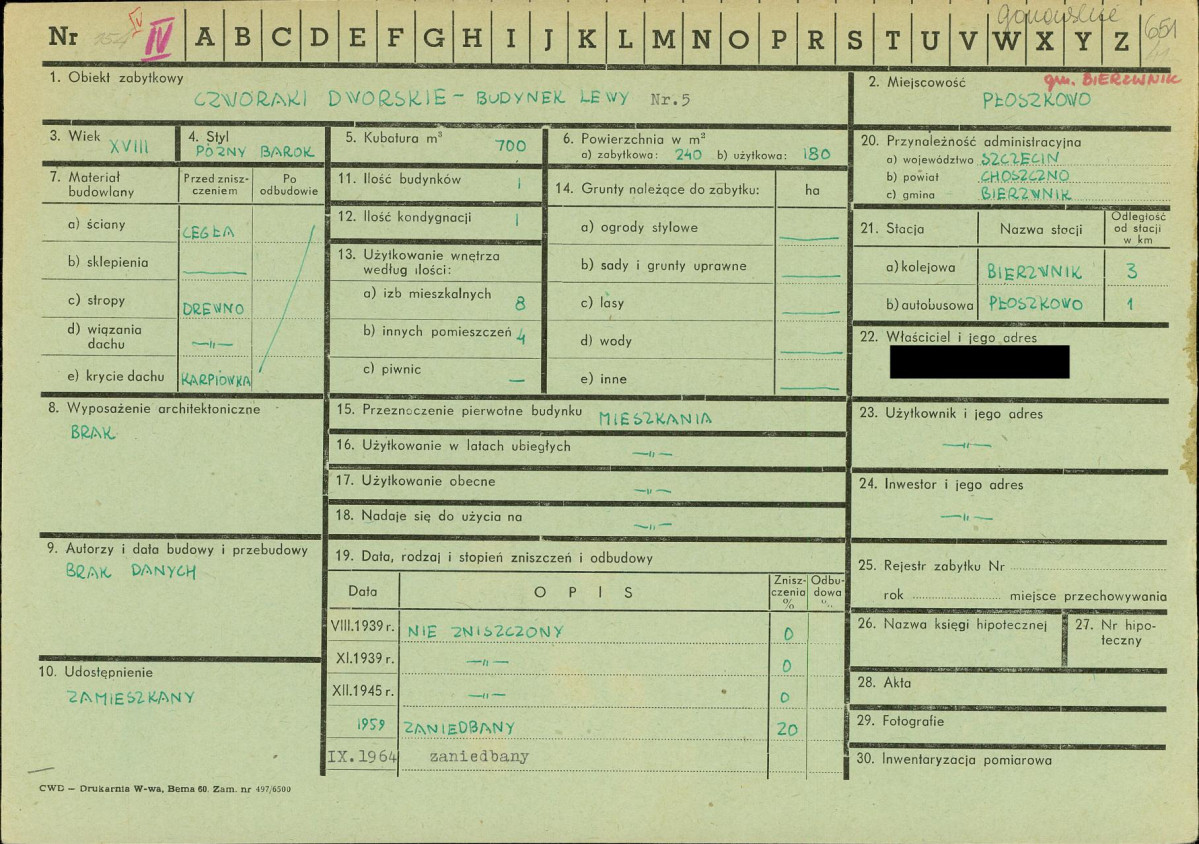 Nr IV A B C D E F G H I J K L M N O P R S T U V W X Y Z 651
gm. BIERZWNIK
1. Obiekt zabytkowy
CZWORAKI DWORSKIE – BUDYNEK LEWY Nr.5
2. Miejscowość
PŁOSZKOWO
3. Wiek XVIII
4. Styl
PÓŹNY BAROK
5. Kubatura m³ 700
6. Powierzchnia w m²
a) zabytkowa: 240 b) użytkowa: 180
7. Materiał budowlany
Przed zniszczeniem
Po odbudowie
a) ściany CEGŁA
b) sklepienia —
c) stropy DREWNO
d) wiązania dachu —„—
e) krycie dachu KARPIÓWKA
8. Wyposażenie architektoniczne
BRAK
9. Autorzy i data budowy i przebudowy
BRAK DANYCH
10. Udostępnienie
ZAMIESZKANY
11. Ilość budynków 1
12. Ilość kondygnacji 1
13. Użytkowanie wnętrza
według ilości:
a) izb mieszkalnych 8
b) innych pomieszczeń 4
c) piwnic —
14. Grunty należące do zabytku: ha
a) ogrody stylowe —
b) sady i grunty uprawne —
c) lasy —
d) wody —
e) inne —
15. Przeznaczenie pierwotne budynku MIESZKANIA
16. Użytkowanie w latach ubiegłych —„—
17. Użytkowanie obecne —„—
18. Nadaje się do użycia na —„—
19. Data, rodzaj i stopień zniszczeń i odbudowy
Data OPIS Zniszczenia % Odbudowa %
VIII.1939 r. NIE ZNISZCZONY 0
XI.1939 r. —„— 0
XII.1945 r. —„— 0
1959 ZANIEDBANY 20
IX.1964 zaniedbany
20. Przynależność administracyjna
a) województwo SZCZECIN
b) powiat CHOSZCZNO
c) gmina BIERZWNIK
21. Stacja Nazwa stacji Odległość od stacji w km
a) kolejowa BIERZWNIK 3
b) autobusowa PŁOSZKOWO 1
22. Właściciel i jego adres
23. Użytkownik i jego adres
—„—
24. Inwestor i jego adres
—„—
25. Rejestr zabytku Nr
rok miejsce przechowywania
26. Nazwa księgi hipotecznej
27. Nr hipoteczny
28. Akta
29. Fotografie
30. Inwentaryzacja pomiarowa
CWD — Drukarnia W-wa, Bema 60. Zam. nr 497/6500